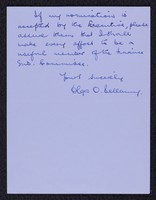 If my nomination is
accepted by the Executive, please
assure them that I shall
make every effort to be a
useful member of the
Sub. Committee.
Yours sincerely
Olga O.